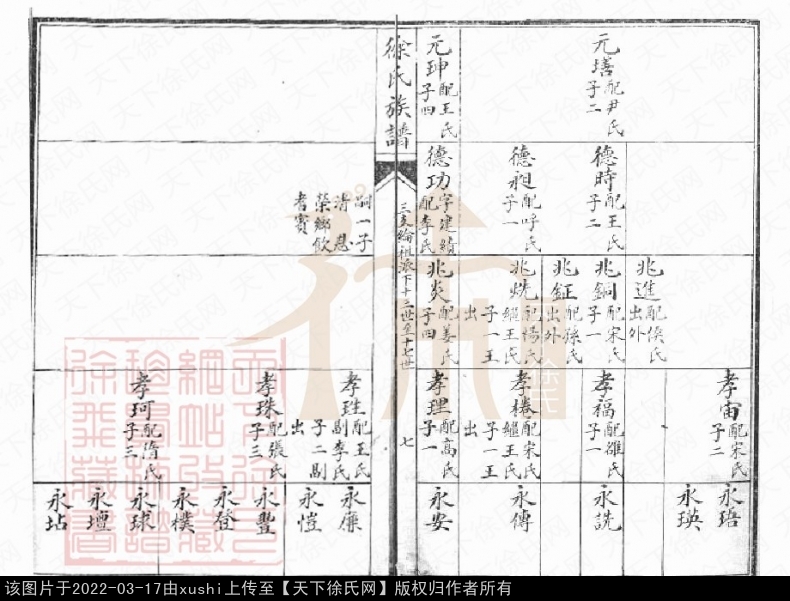 元璿 配尹氏 子二
元珅 配王氏 子四
德時 配王氏 子二
德昶 配呼氏 子一
德功 字建績 配李氏
兆進 配侯氏 出外
兆銅 配宋氏 子一
兆鉦 配孫氏 出外
兆燒 配陽氏 繼王氏 子一王出
兆炎 配姜氏 子四
孝宙 配宋氏 子二
孝福 配雒氏 子一
孝椿 配宋氏 繼王氏 子一王出
孝理 配高氏 子一
永珸
永瑛
永說
永傳
永安
徐氏族譜
三支綸祖派下十三世至十七世
七
嗣一子
清恩
榮鄉飲
耆賓
孝珄 配王氏 副李氏 子二副出
孝珠 配張氏 子三
孝珂 配隋氏 子三
永廉
永愷
永豐
永登
永樸
永球
永壇
永坫
徐氏
该图片于2022-03-17由xushi上传至【天下徐氏网】版权归作者所有